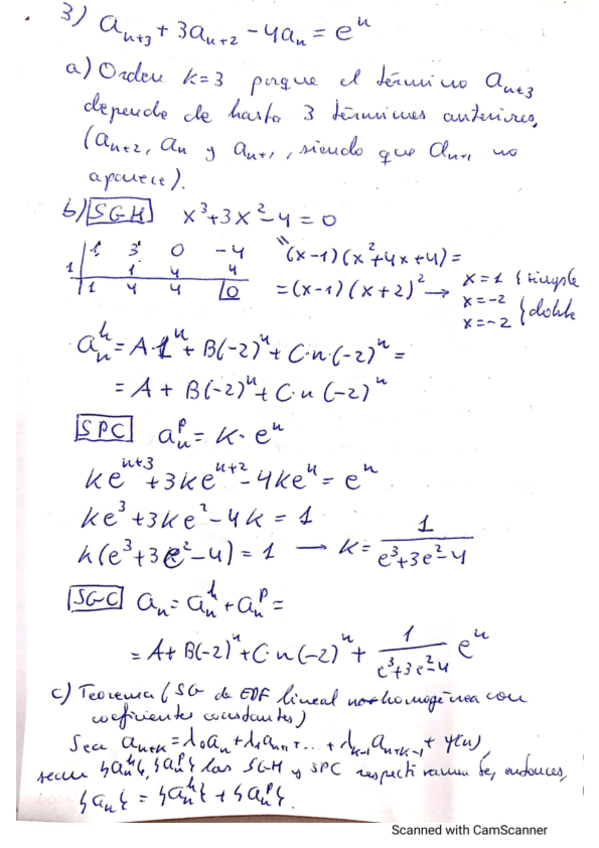 3) aₙ₊₃ + 3aₙ₊₂ - 4aₙ = eⁿ
a) Orden k=3 porque el término aₙ₊₃
depende de hasta 3 términos anteriores,
(aₙ₊₂, aₙ y aₙ₊₁, siendo que aₙ₊₁ no
aparece).
b) SGH x³+3x²-4=0
1 3 0 -4 (x-1)(x²+4x+4)=
1 1 4 4
1 4 4 0 =(x-1)(x+2)² → x=1 } simple
x=-2
x=-2 } doble
aₙʰ = A·1ⁿ + B(-2)ⁿ + C·n·(-2)ⁿ =
= A + B(-2)ⁿ + C·n(-2)ⁿ
SPC aₙᵖ = k·eⁿ
keⁿ⁺³ + 3keⁿ⁺² - 4keⁿ = eⁿ
ke³ + 3ke² - 4k = 1
k(e³+3e²-4) = 1 → k = 1/(e³+3e²-4)
SGC aₙ = aₙʰ + aₙᵖ =
= A + B(-2)ⁿ + C·n(-2)ⁿ + 1/(e³+3e²-4) eⁿ
c) Teorema (SG de EDF lineal no homogénea con
coeficientes constantes)
Sea aₙ₊ₖ = λ₀aₙ + λ₁aₙ₊₁ + ... + λₖ₋₁aₙ₊ₖ₋₁ + φ(n)
sean {aₙʰ}, {aₙᵖ} las SGH y SPC respectivamente, entonces,
{aₙ} = {aₙʰ} + {aₙᵖ}.
Scanned with CamScanner